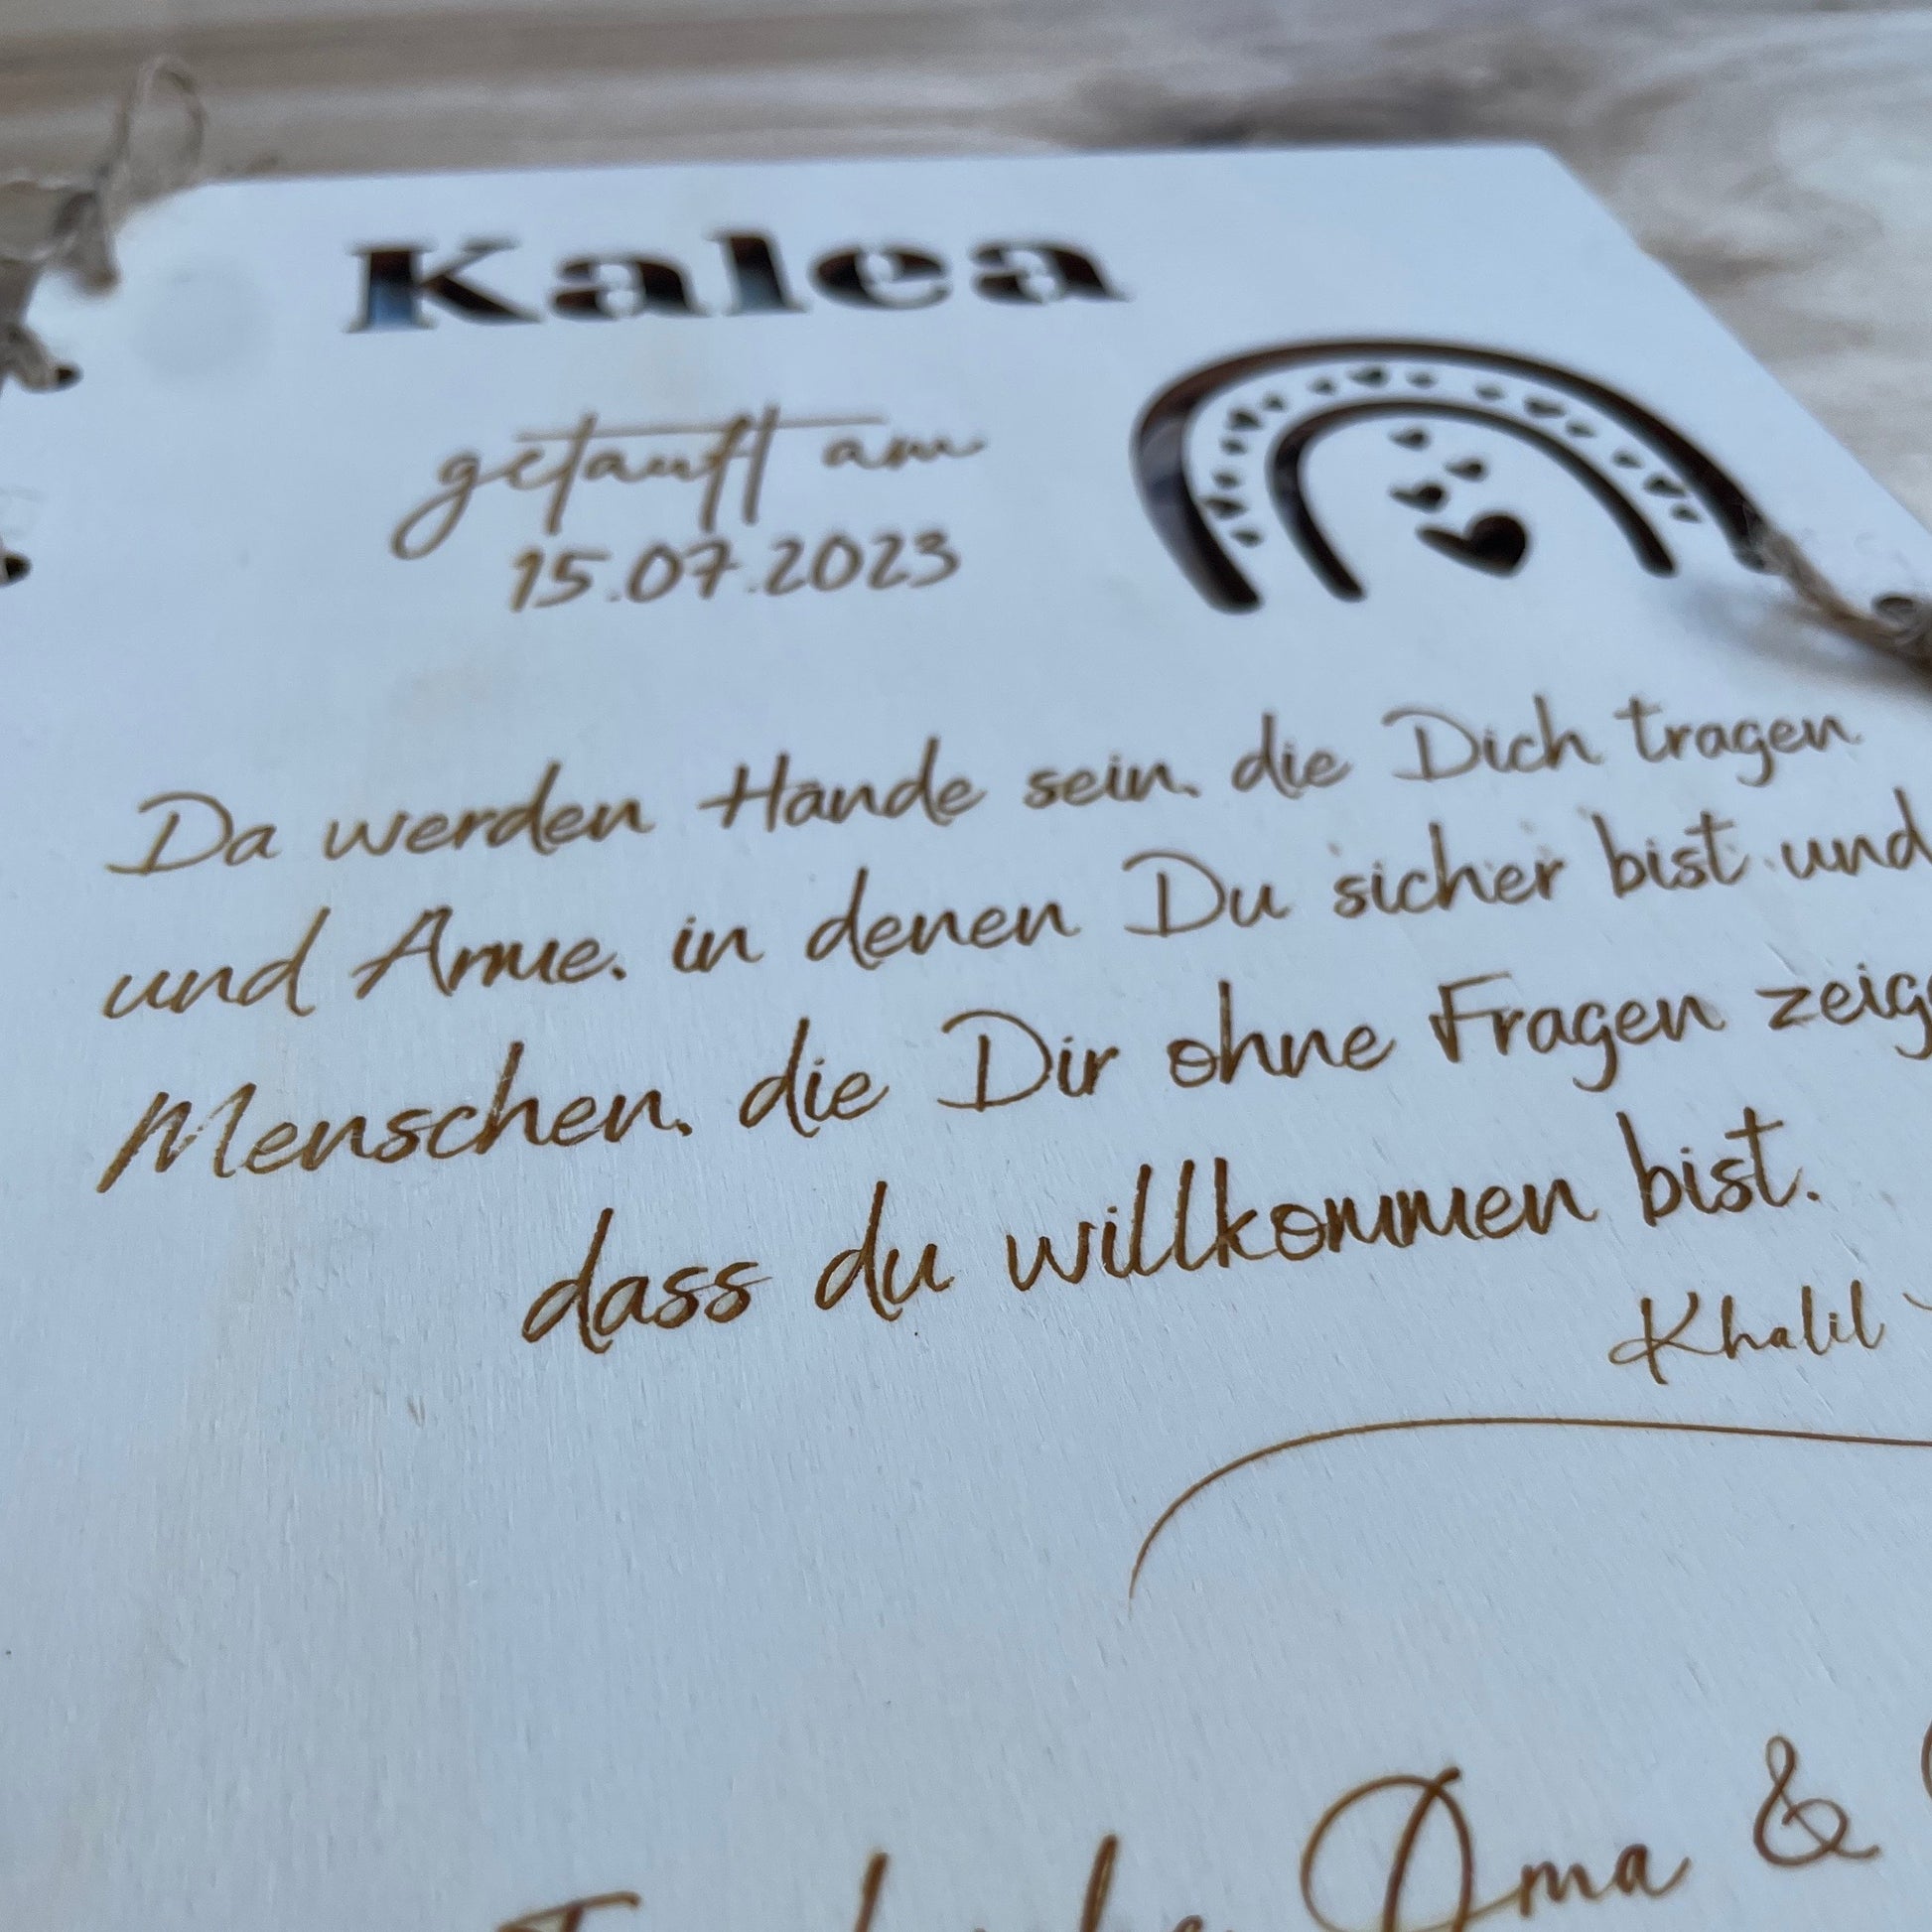 Kalea
getauft am
15.07.2023
Da werden Hände sein, die Dich tragen
und Arme, in denen Du sicher bist und
Menschen, die Dir ohne Fragen
dass du willkommen bist.
Khalil
Oma &